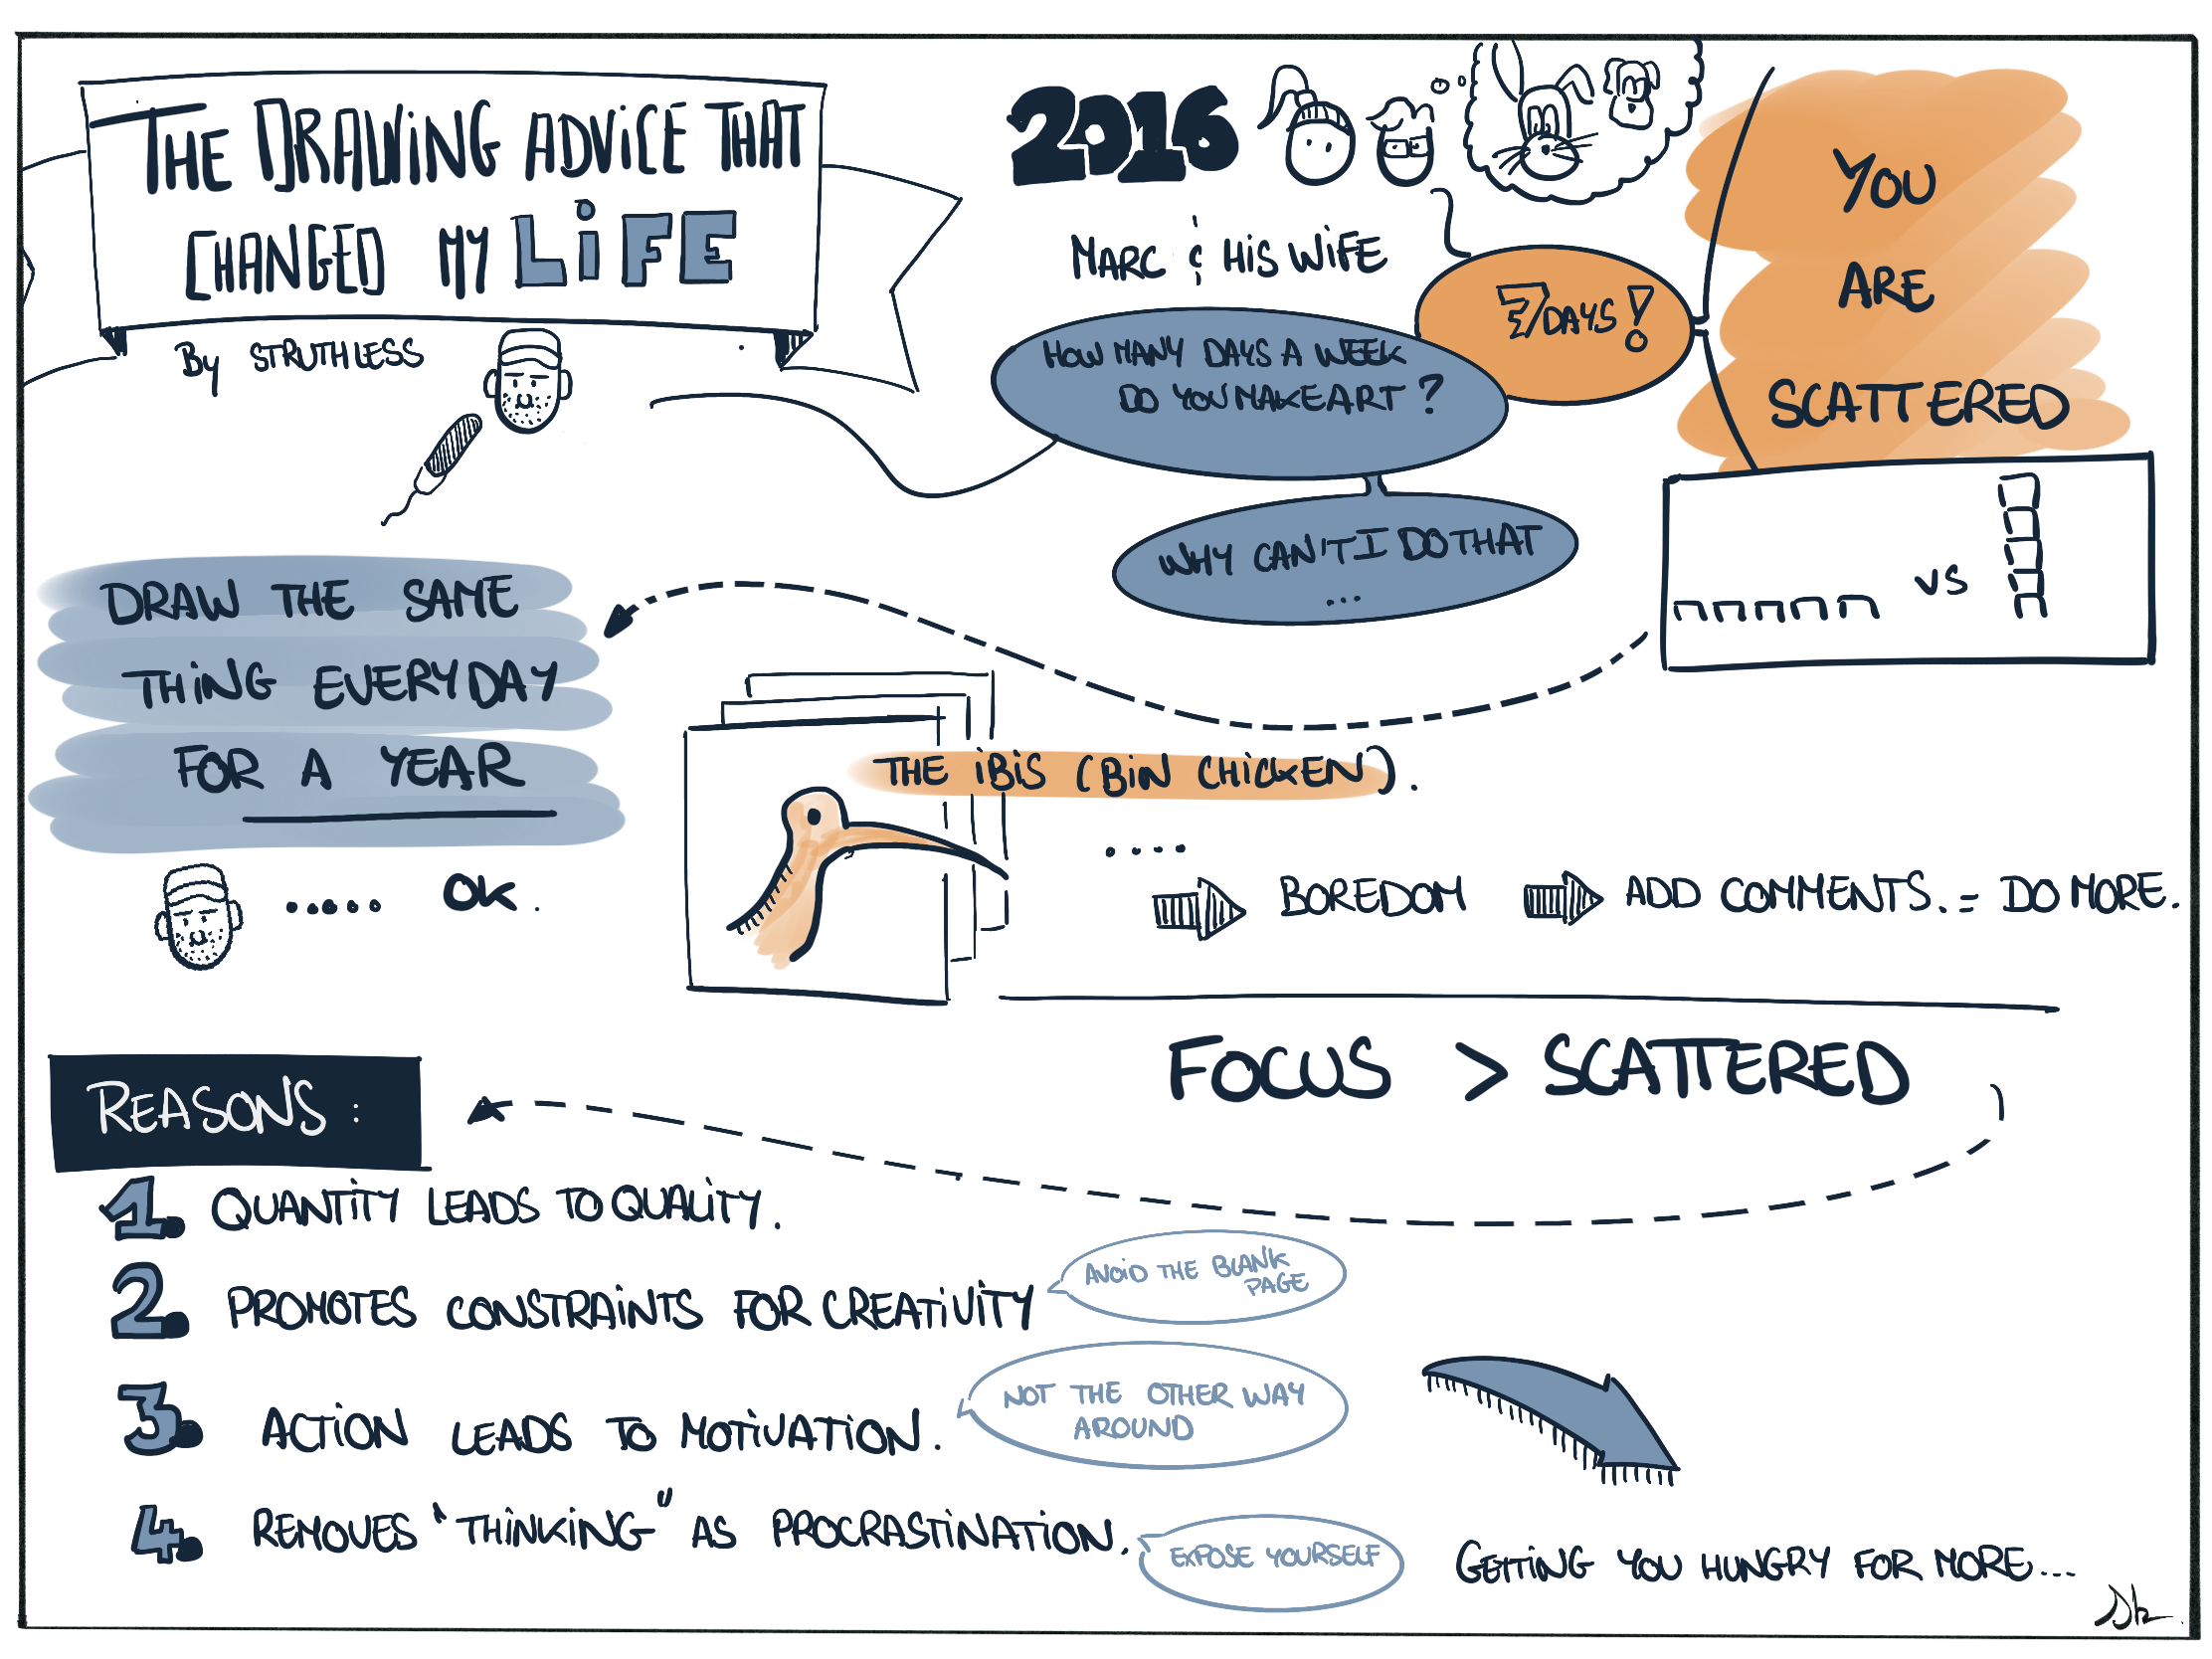 THE DRAWING ADVICE THAT
CHANGED MY LIFE
By STRUTHLESS
2016
MARC & HIS WIFE
HOW MANY DAYS A WEEK
DO YOU MAKE ART ?
7 DAYS !
WHY CAN'T I DO THAT
...
YOU
ARE
SCATTERED
VS
DRAW THE SAME
THING EVERYDAY
FOR A YEAR
..... OK.
THE IBIS (BIN CHICKEN).
....
BOREDOM
ADD COMMENTS. = DO MORE.
FOCUS > SCATTERED
REASONS :
1. QUANTITY LEADS TO QUALITY.
2. PROMOTES CONSTRAINTS FOR CREATIVITY
AVOID THE BLANK
PAGE
3. ACTION LEADS TO MOTIVATION.
NOT THE OTHER WAY
AROUND
4. REMOVES "THINKING" AS PROCRASTINATION.
EXPOSE YOURSELF
GETTING YOU HUNGRY FOR MORE...